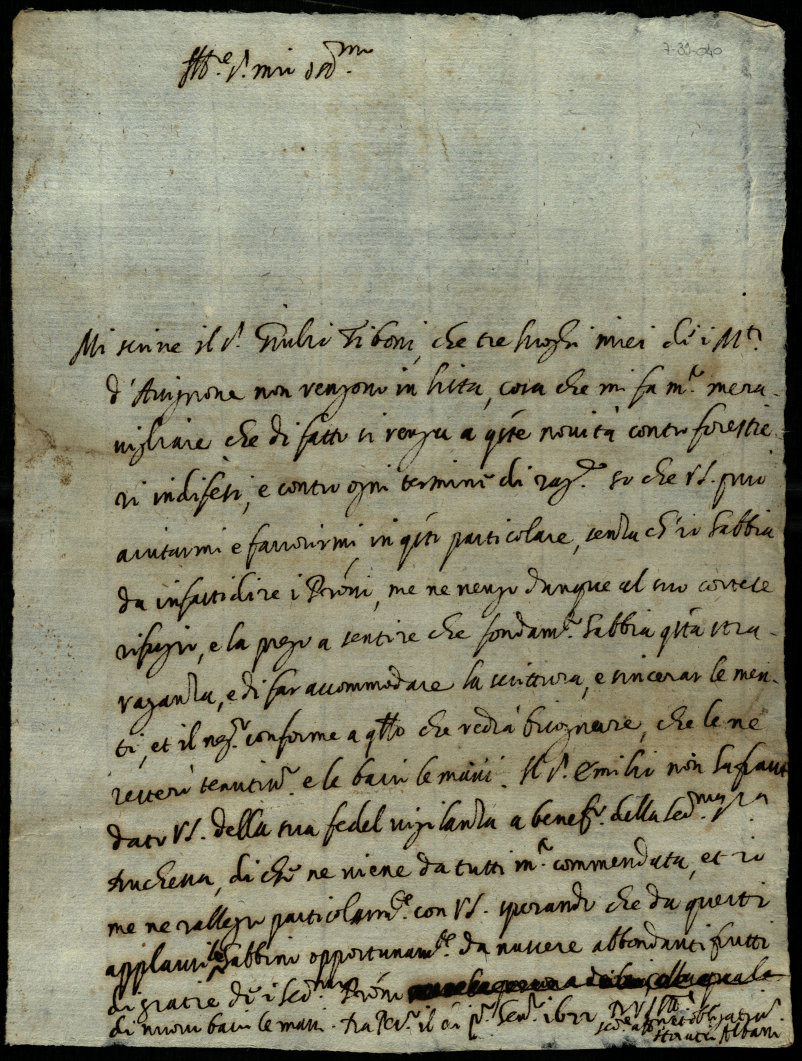 7-32-040
Ill.e S.r mio oss.mo
Mi scrive il S.r Giulio Tiboni, che tre luoghi miei de i M.ti
d'Avignone non vengono in lista, cosa che mi fa m.o mera-
vigliare che di fatto si venga a q.ste novità contro forestie-
ri indifesi, e contro ogni termine di rag.e so che VS. può
aiutarmi e favorirmi in q.sto particolare, senza ch'io habbia
da infastidire i Pròni, me ne vengo dunque al suo cortese
rifugio, e la prego a sentire che fondam.to habbia q.sta stra-
vaganza, e di far accommodare la scrittura, e sincerar le men-
ti, et il neg.o conforme a q.llo che vedrà bisognare, che le ne
resterò tenutiss.o e le bacio le mani. Il S.r Emilio non ha frau-
dato VS. della sua fedel vigilanza a benef.o della Ser.ma
Duchessa, di che ne viene da tutti m.o commendata, et io
me ne rallegro particolarm.te con VS. sperando che da questi
applausi habbino opportunam.te da nascere abbondanti frutti
di gratie de i Ser.mi Pròni
di nuovo bacio le mani. Da il di p.o 1622 D VS Ill.